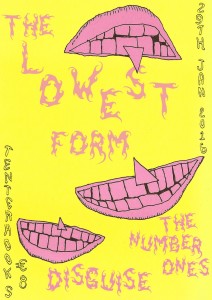 THE
LOWEST
FORM
29TH JAN 2016
TENTERHOOKS
€8
THE
NUMBER
ONES
DISGUISE